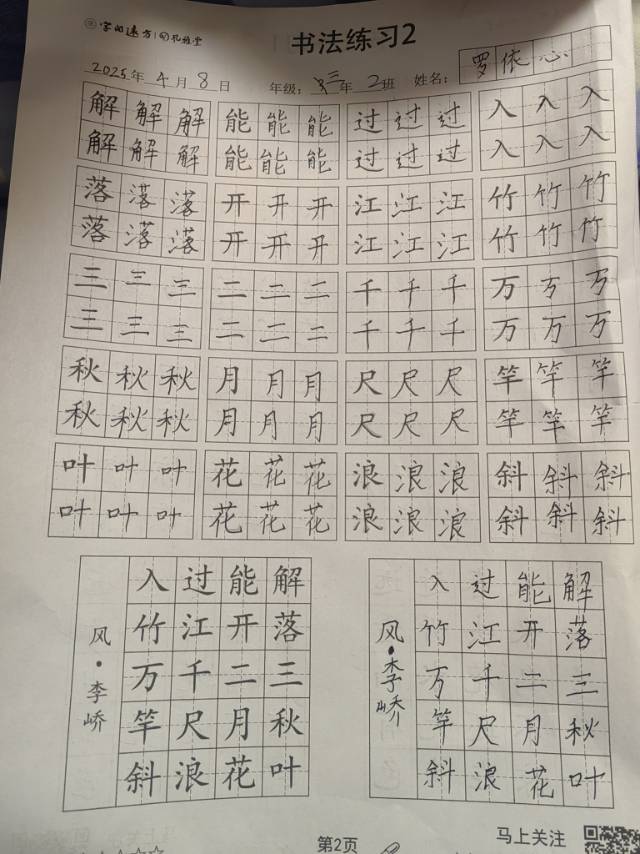 字的远方 孔祖堂
书法练习2
2025年 4月 8日 年级: 三年 2班 姓名: 罗依心
解解解 能能能 过过过 入入入
解解解 能能能 过过过 入入入
落落落 开开开 江江江 竹竹竹
落落落 开开开 江江江 竹竹竹
三三三 二二二 千千千 万万万
三三三 二二二 千千千 万万万
秋秋秋 月月月 尺尺尺 竿竿竿
秋秋秋 月月月 尺尺尺 竿竿竿
叶叶叶 花花花 浪浪浪 斜斜斜
叶叶叶 花花花 浪浪浪 斜斜斜
解落三秋叶
能开二月花
过江千尺浪
入竹万竿斜
风·李峤
解落三秋叶
能开二月花
过江千尺浪
入竹万竿斜
风·李峤
第2页
马上关注